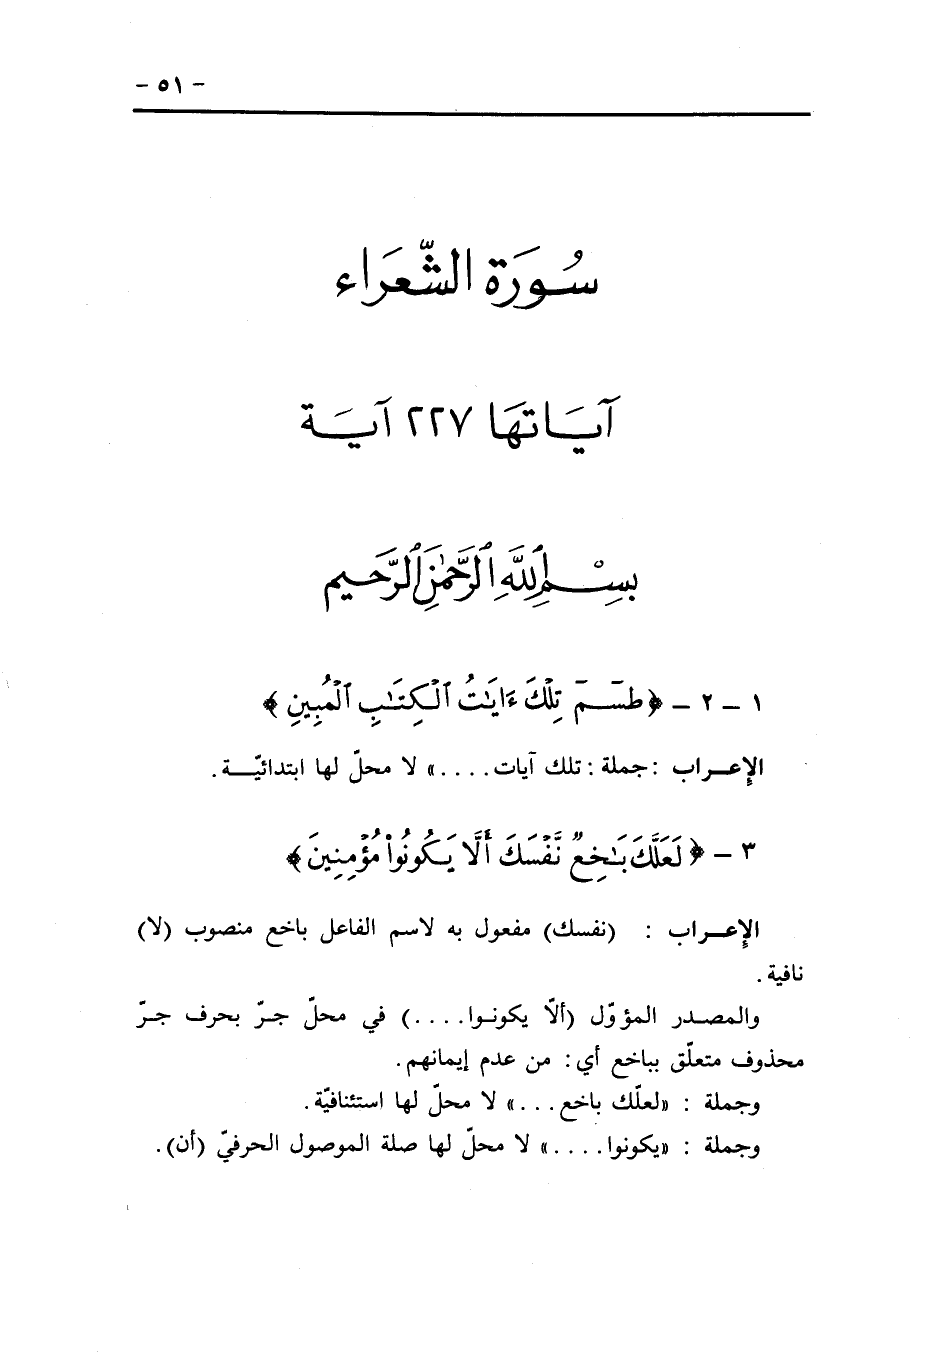 - ٥١ -
سُورَة الشّعَرَاء
آيَاتهَا ٢٢٧ آيَة
بِسْمِ ٱللَّهِ ٱلرَّحْمَٰنِ ٱلرَّحِيمِ
١ - ٢ - ﴿طسٓمٓ تِلْكَ ءَايَٰتُ ٱلْكِتَٰبِ ٱلْمُبِينِ﴾
الإعراب : جملة : تلك آيات . . . .» لا محلّ لها ابتدائيّة .
٣ - ﴿لَعَلَّكَ بَٰخِعٌ نَّفْسَكَ أَلَّا يَكُونُوا۟ مُؤْمِنِينَ﴾
الإعراب : (نفسك) مفعول به لاسم الفاعل باخع منصوب (لا)
نافية .
والمصدر المؤوّل (ألّا يكونوا . . . .) في محلّ جرّ بحرف جرّ
محذوف متعلّق بباخع أي : من عدم إيمانهم .
وجملة : «لعلّك باخع . . .» لا محلّ لها استئنافيّة .
وجملة : «يكونوا . . . .» لا محلّ لها صلة الموصول الحرفيّ (أن) .